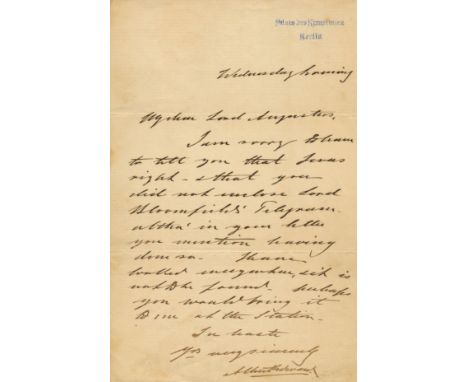 Palais des Kronprinzen
Berlin
Wednesday Evening
My dear Lord Augustus,
I am sorry to have
to tell you that I was
right - & that you
did not enclose Lord
Bloomfield's Telegram -
altho' in your letter
you mention having
done so - I have
looked everywhere, it is
not to be found - perhaps
you would bring it
to me at the Station -
In haste
Yrs very sincerely